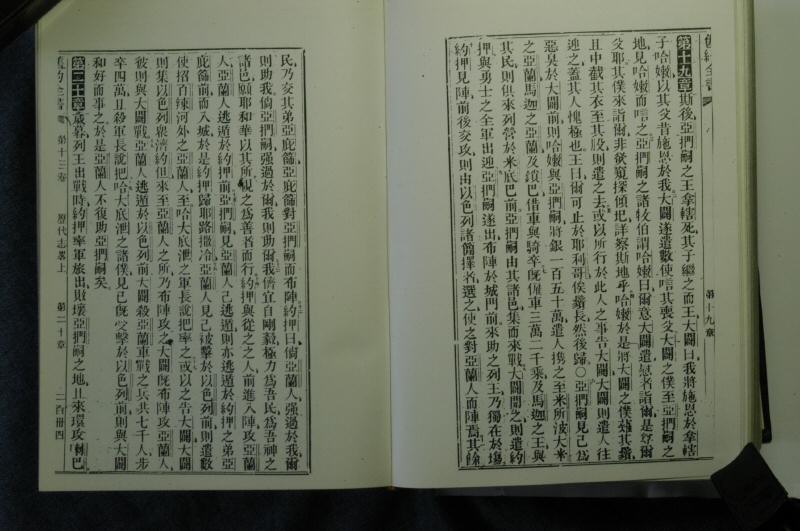 舊約全書
第十九章
第十九章斯後亞捫嗣之王拿轄死其子繼之而王大闢曰我將施恩於拿轄
子哈嫩以其父昔施恩於我大闢遂遣數使唁其喪父大闢之僕至亞捫嗣之
地見哈嫩而唁之亞捫嗣之諸牧伯謂哈嫩曰爾意大闢遣慰者詣爾是尊爾
父耶其僕來詣爾非欲窺探傾圮詳察斯地乎哈嫩於是將大闢之僕薙其鬚
且中截其衣至其股則遣之去或以所行於此人之事告大闢大闢則遣人往
迎之蓋其人愧極也王曰爾可止於耶利哥俟鬚長然後歸○亞捫嗣見己為
惡臭於大闢前則哈嫩與亞捫嗣將銀一百五十萬遣人攜之至米所波大米
之亞蘭馬迦之亞蘭及鎖巴借車與騎卒旣僱車三萬二千乘及馬迦之王與
其民則俱來列營於米底巴前亞捫嗣由其諸邑集而來戰大闢聞之則遣約
押與勇士之全軍出迎亞捫嗣遂出布陣於城門前來助之列王乃獨在於塲
約押見陣前後交攻則由以色列諸簡擇者選之使之對亞蘭人而陣焉其餘
民乃交其弟亞庇篩亞庇篩對亞捫嗣而布陣約押曰倘亞蘭人強過於我爾
則助我倘亞捫嗣強過於爾我則助爾我儕宜自剛毅極力為吾民為吾神之
諸邑願耶和華以其所視之為善者而行約押與從之之人前進入陣攻亞蘭
人亞蘭人逃遁於約押前亞捫嗣見亞蘭人已逃遁則亦逃遁於約押之弟亞
庇篩前而入城於是約押歸耶路撒冷亞蘭人見己被擊於以色列前則遣數
使招百辣河外之亞蘭人至哈大底泄之軍長說把率之或以之告大闢大闢
則集以色列衆濟約但來至亞蘭人之所乃布陣攻之大闢旣布陣攻亞蘭人
彼則與大闢戰亞蘭人逃遁於以色列前大闢殺亞蘭車戰之兵共七千人步
卒四萬且殺軍長說把哈大底泄之諸僕見己旣受擊於以色列前則與大闢
和好而事之於是亞蘭人不復助亞捫嗣矣
第二十章歲暮列王出戰時約押率軍旅出敗壞亞捫嗣之地且來環攻喇巴
舊約全書 第十三卷 歷代志畧上 第二十章 二百卅四